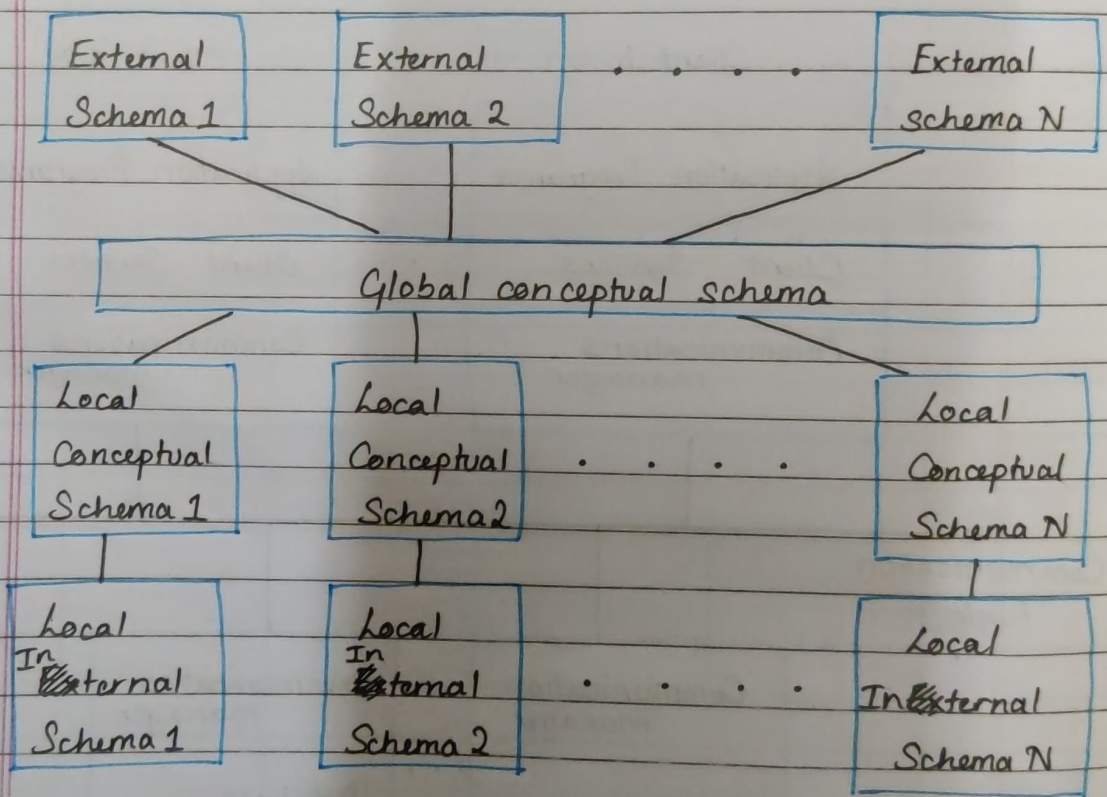 External
Schema 1
External
Schema 2
. . . .
External
schema N
Global conceptual schema
Local
Conceptual
Schema 1
Local
Conceptual
Schema 2
. . . .
Local
Conceptual
Schema N
Local
Internal
Schema 1
Local
Internal
Schema 2
. . . .
Local
Internal
Schema N